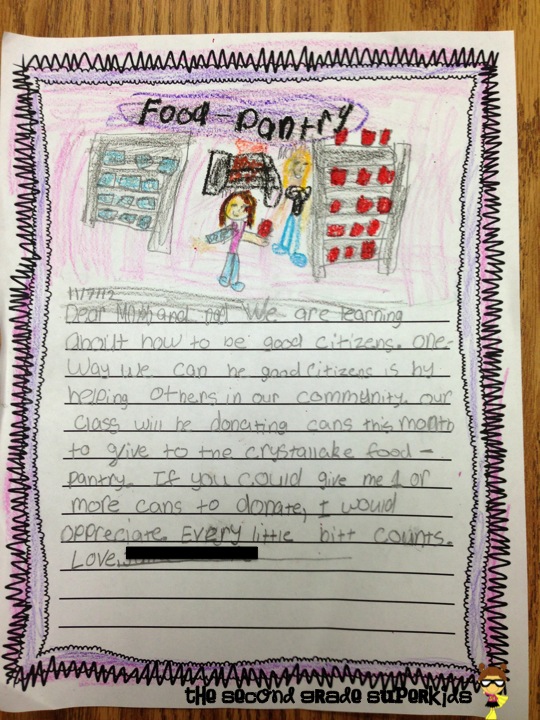 Food-pantry
11/7/12
Dear Mom and Dad We are learning
about how to be good citizens. One-
Way we can be good citizens is by
helping others in our community. our
class will be donating cans this month
to give to the crystallake food-
pantry. If you could give me 1 or
more cans to donate, I would
appreciate. Every little bitt counts.
Love,
the second grade superkids